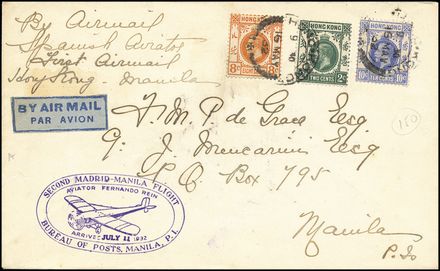 By Airmail
Spanish Aviator
First Airmail
Hong Kong - Manila
BY AIR MAIL
PAR AVION
HONG KONG
8c EIGHT CENTS 8c
HONG KONG
2c TWO CENTS 2c
HONG KONG
10c TEN CENTS 10c
150
F. M. P. de Grace Esq
G. J. Mencarini Esq
P.O Box 795
Manila
P. Is
SECOND MADRID-MANILA FLIGHT
AVIATOR FERNANDO REIN
ARRIVED JULY 11 1932
BUREAU OF POSTS, MANILA, P. I.